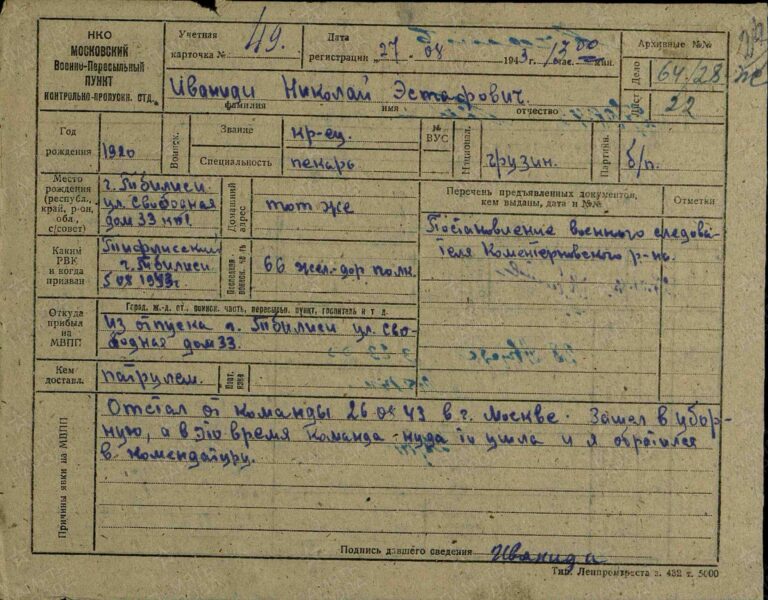 НКО
МОСКОВСКИЙ
Военно-Пересыльный
ПУНКТ
КОНТРОЛЬНО-ПРОПУСКН. ОТД.
Учетная
карточка № 49.
Дата
регистрации „27„ 08 1943 г. /час. мин.
Архивные №№
Дело 64/28
Лист 22
Иваниди Николай Эстафович.
фамилия имя отчество
Год
рождения 1920
Воинск.
Звание кр-ец.
Специальность пекарь
№
ВУС
Национал. грузин.
Партийн. б/п.
Место
рождения
(республ.,
край, р-он,
обл.,
с/совет)
г. Тбилиси
ул. Свободная
дом 33
Домашний
адрес
тот же
Перечень предъявленных документов,
кем выданы, дата и №№
Отметки
Постановление военного следова-
теля Коментерновского р-на.
Каким
РВК
и когда
призван
Тифлисским
г. Тбилиси
5 08 1943 г
Последняя
воинск. ч-ть
66 жел-дор полк.
Откуда
прибыл
на
МВПП
Город, ж.-д. ст., воинск. часть, пересыльн. пункт, госпиталь и т д.
Из отпуска г. Тбилиси ул. Сво-
бодная дом 33.
Кем
доставл. патрулем.
Причины явки на МВПП
Отстал от команды 26 08 43 в г. Москве. Зашел в убор-
ную, а в это время команда куда то ушла и я обратился
в комендатуру.
Подпись давшего сведения Иваниди
Тип. Ленпромтреста з. 432 т. 5000